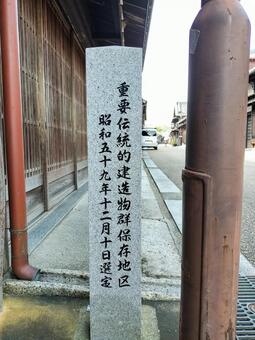 重要伝統的建造物群保存地区
昭和五十九年十二月十日選定